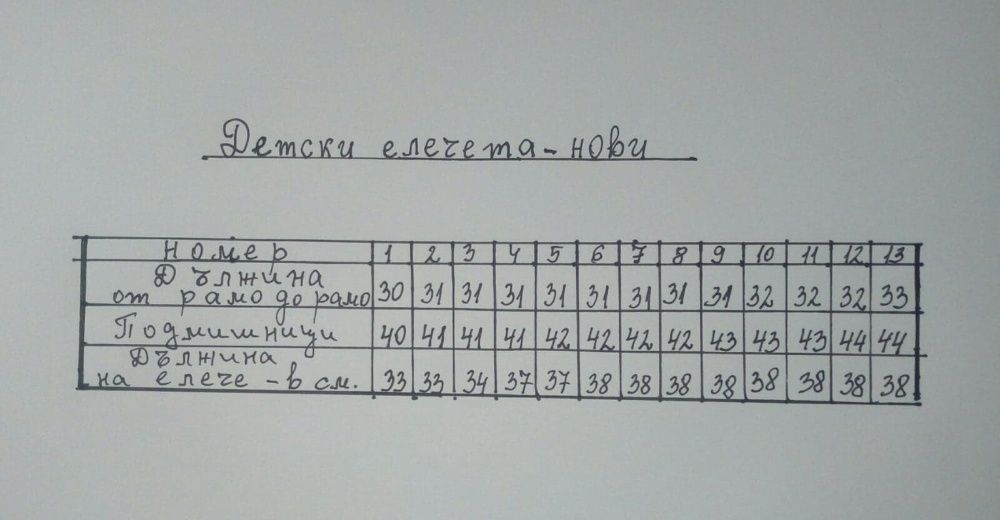 Детски елечета - нови
номер 1 2 3 4 5 6 7 8 9 10 11 12 13
Дължина
от рамо до рамо 30 31 31 31 31 31 31 31 31 32 32 32 33
Подмишници 40 41 41 41 42 42 42 42 43 43 43 44 44
Дължина
на елече - в см. 33 33 34 37 37 38 38 38 38 38 38 38 38